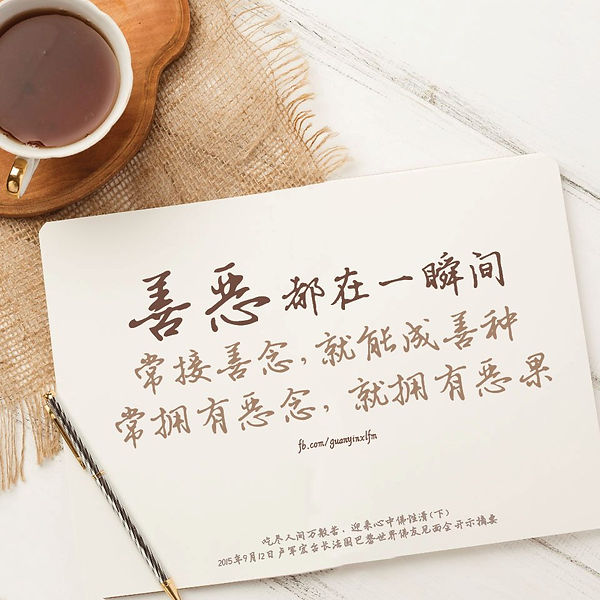 善恶都在一瞬间
常接善念,就能成善种
常拥有恶念,就拥有恶果
fb.com/guanyinxlfm
吃尽人间万般苦,迎来心中佛性清(下)
2015年9月12日卢军宏台长法国巴黎世界佛友见面会开示摘要